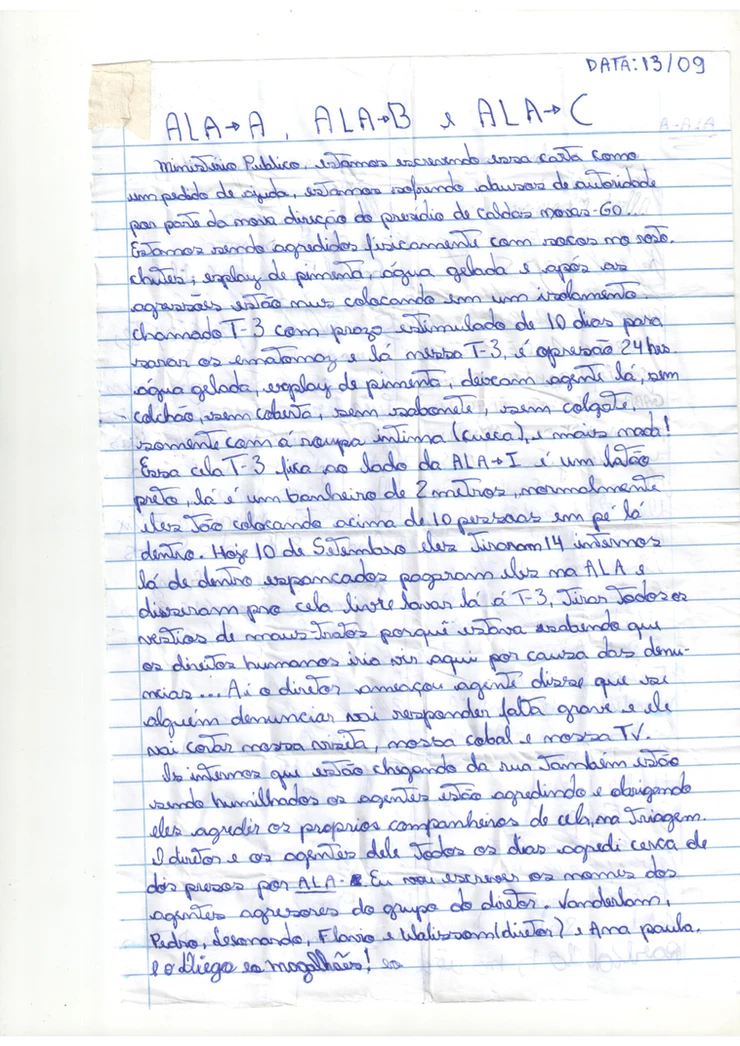 DATA: 13/09
ALA→A, ALA→B e ALA→C
Ministério Publico, estamos escrevendo essa carta como
um pedido de ajuda, estamos sofrendo abusos de autoridade
por parte da nova direção do presídio de caldas novas-GO...
Estamos sendo agredidos fisicamente com socos no rosto.
chutes, esplay de pimenta, água gelada e após as
agressões estão nus colocando em um isolamento.
chamado T-3 com prazo estimulado de 10 dias para
sarar os ematomaz e lá nessa T-3, é opressão 24 hrs.
água gelada, esplay de pimenta, deixam agente lá, sem
colchão, sem coberta, sem sabonete, sem colgate,
somente com á roupa intima (cueca), e mais nada!
Essa cela T-3 fica ao lado da ALA→I é um latão
preto, lá é um banheiro de 2 metros, normalmente
eles tão colocando acima de 10 pessoas em pé lá
dentro. Hoje 10 de Setembro eles tiraram 14 internos
lá de dentro espancados pogaram eles na ALA e
disseram pro cela livre lavar lá á T-3, tirar todos os
vestios de maus-tratos porquê estava sabendo que
os direitos humanos iria vir aqui por causa das denu-
ncias... Ai o diretor ameaçou agente disse que se
alguém denunciar vai responder falta grave e ele
vai cortar nossa visita, nossa cobal e nossa TV.
Os internos que estão chegando da rua também estão
sendo humilhados os agentes estão agredindo e obrigando
eles agredir os proprios companheiros de cela, na triagem.
O diretor e os agentes dele todos os dias agredi cerca de
dós presos por ALA. Eu vou escrever os nomes dos
agentes agresores do grupo do diretor. Vanderlam,
Pedro, Leonando, Flavio e Walissom (diretor) e Ana paula.
e o Diego es magalhães!